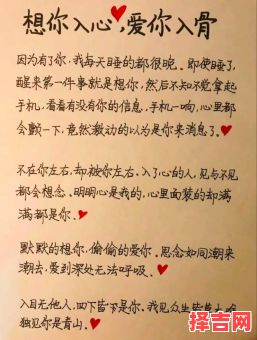 想你入心❤，爱你入骨
因为有了你，我每天睡的都很晚。即使睡了，
醒来第一件事就是想你，然后不知不觉拿起
手机，看看有没有你的信息，手机一响，心里都
会颤一下，竟然激动的以为是你来消息了。❤
不在你左右，却被你左右，入了心的人，见与不见
都会想念。明明心是我的，心里面装的却满
满都是你。❤
默默的想你，偷偷的爱你。思念如同潮来
潮去，爱到深处无法呼吸。❤
入目无他人，四下皆是你。我见众生皆草木，唯
独见你是青山。❤
择吉网